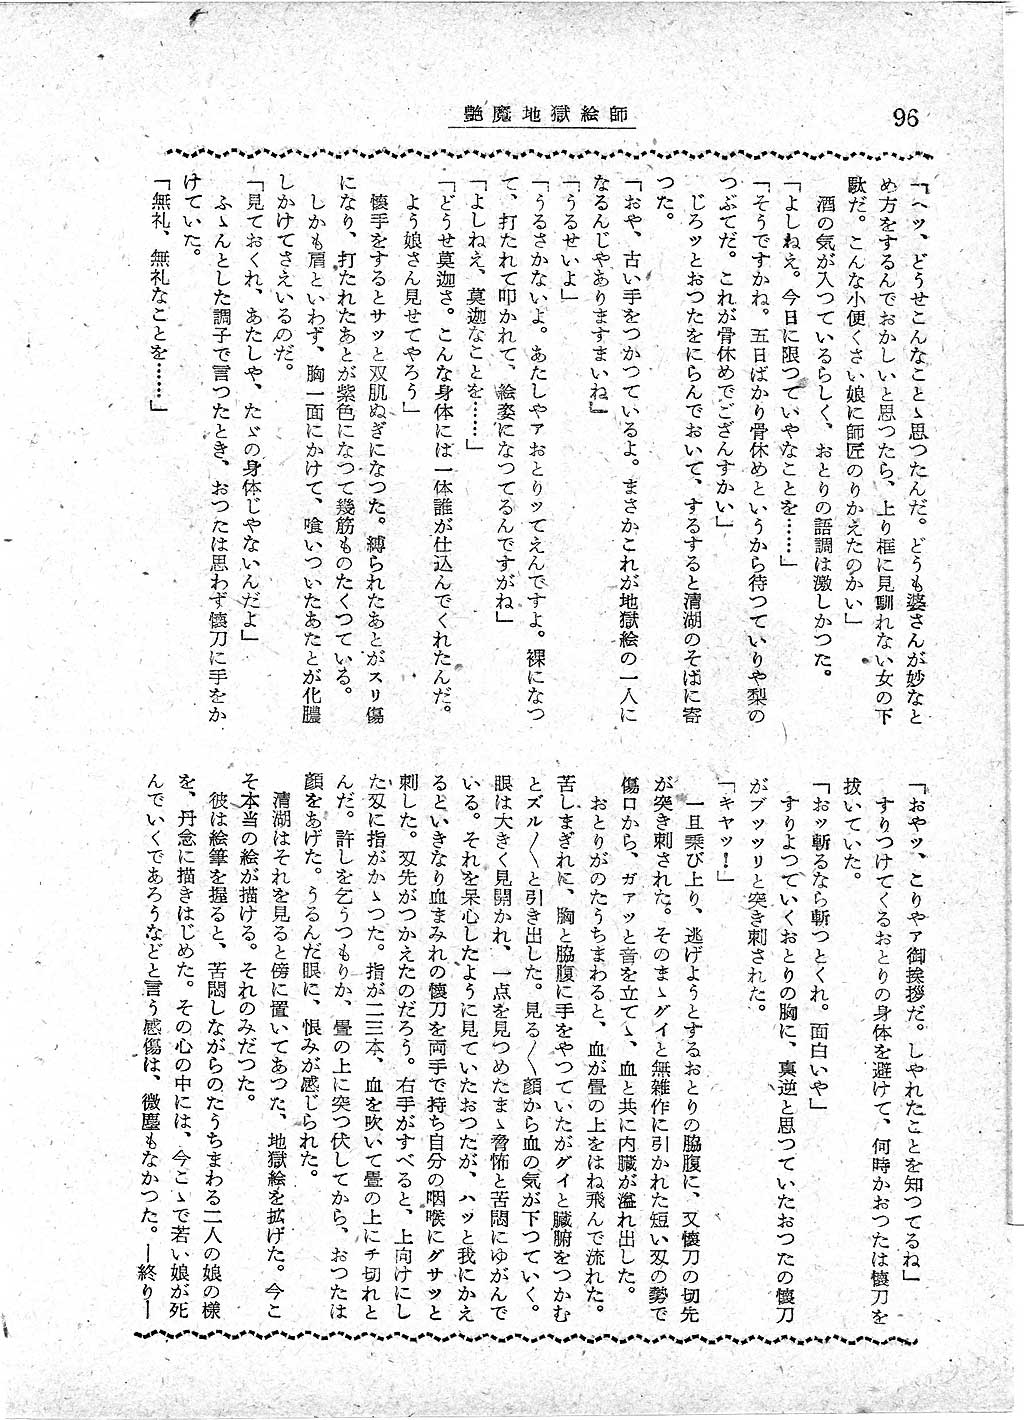 96
艶魔地獄絵師
「ヘッ、どうせこんなことゝ思つたんだ。どうも婆さんが妙なと
め方をするんでおかしいと思つたら、上り框に見馴れない女の下
駄だ。こんな小便くさい娘に師匠のりかえたのかい」
酒の気が入つているらしく、おとりの語調は激しかつた。
「よしねえ。今日に限つていやなことを……」
「そうですかね。五日ばかり骨休めというから待つていりや梨の
つぶてだ。これが骨休めでござんすかい」
じろッとおつたをにらんでおいて、するすると清湖のそばに寄
つた。
「おや、古い手をつかつているよ。まさかこれが地獄絵の一人に
なるんじやありますまいね」
「うるせいよ」
「うるさかないよ。あたしやァおとりッてえんですよ。裸になつ
て、打たれて叩かれて、絵姿になつてるんですがね」
「よしねえ、莫迦なことを……」
「どうせ莫迦さ。こんな身体には一体誰が仕込んでくれたんだ。
よう娘さん見せてやろう」
懐手をするとサッと双肌ぬぎになつた。縛られたあとがスリ傷
になり、打たれたあとが紫色になつて幾筋ものたくつている。
しかも肩といわず、胸一面にかけて、喰いついたあたとが化膿
しかけてさえいるのだ。
「見ておくれ、あたしや、たゞの身体じやないんだよ」
ふゝんとした調子で言つたとき、おつたは思わず懐刀に手をか
けていた。
「無礼、無礼なことを……」
「おやッ、こりやァ御挨拶だ。しやれたことを知つてるね」
すりつけてくるおとりの身体を避けて、何時かおつたは懐刀を
抜いていた。
「おッ斬るなら斬つとくれ。面白いや」
すりよつていくおとりの胸に、真逆と思つていたおつたの懐刀
がブッツリと突き刺された。
「キヤッ！」
一旦飛び上り、逃げようとするおとりの脇腹に、又懐刀の切先
が突き刺された。そのまゝグイと無雑作に引かれた短い刄の勢で
傷口から、ガァッと音を立てゝ、血と共に内臓が溢れ出した。
おとりがのたうちまわると、血が畳の上をはね飛んで流れた。
苦しまぎれに、胸と脇腹に手をやつていたがグイと臓腑をつかむ
とズル〳〵と引き出した。見る〳〵顔から血の気が下つていく。
眼は大きく見開かれ、一点を見つめたまゝ脅怖と苦悶にゆがんで
いる。それを呆心したように見ていたおつたが、ハッと我にかえ
るといきなり血まみれの懐刀を両手で持ち自分の咽喉にグサッと
刺した。刄先がつかえたのだろう。右手がすべると、上向けにし
た刄に指がかゝつた。指が二三本、血を吹いて畳の上にチ切れと
んだ。許しを乞うつもりか、畳の上に突つ伏してから、おつたは
顔をあげた。うるんだ眼に、恨みが感じられた。
清湖はそれを見ると傍に置いてあつた、地獄絵を拡げた。今こ
そ本当の絵が描ける。それのみだつた。
彼は絵筆を握ると、苦悶しながらのたうちまわる二人の娘の様
を、丹念に描きはじめた。その心の中には、今こゝで若い娘が死
んでいくであろうなどと言う感傷は、微塵もなかつた。―終り―